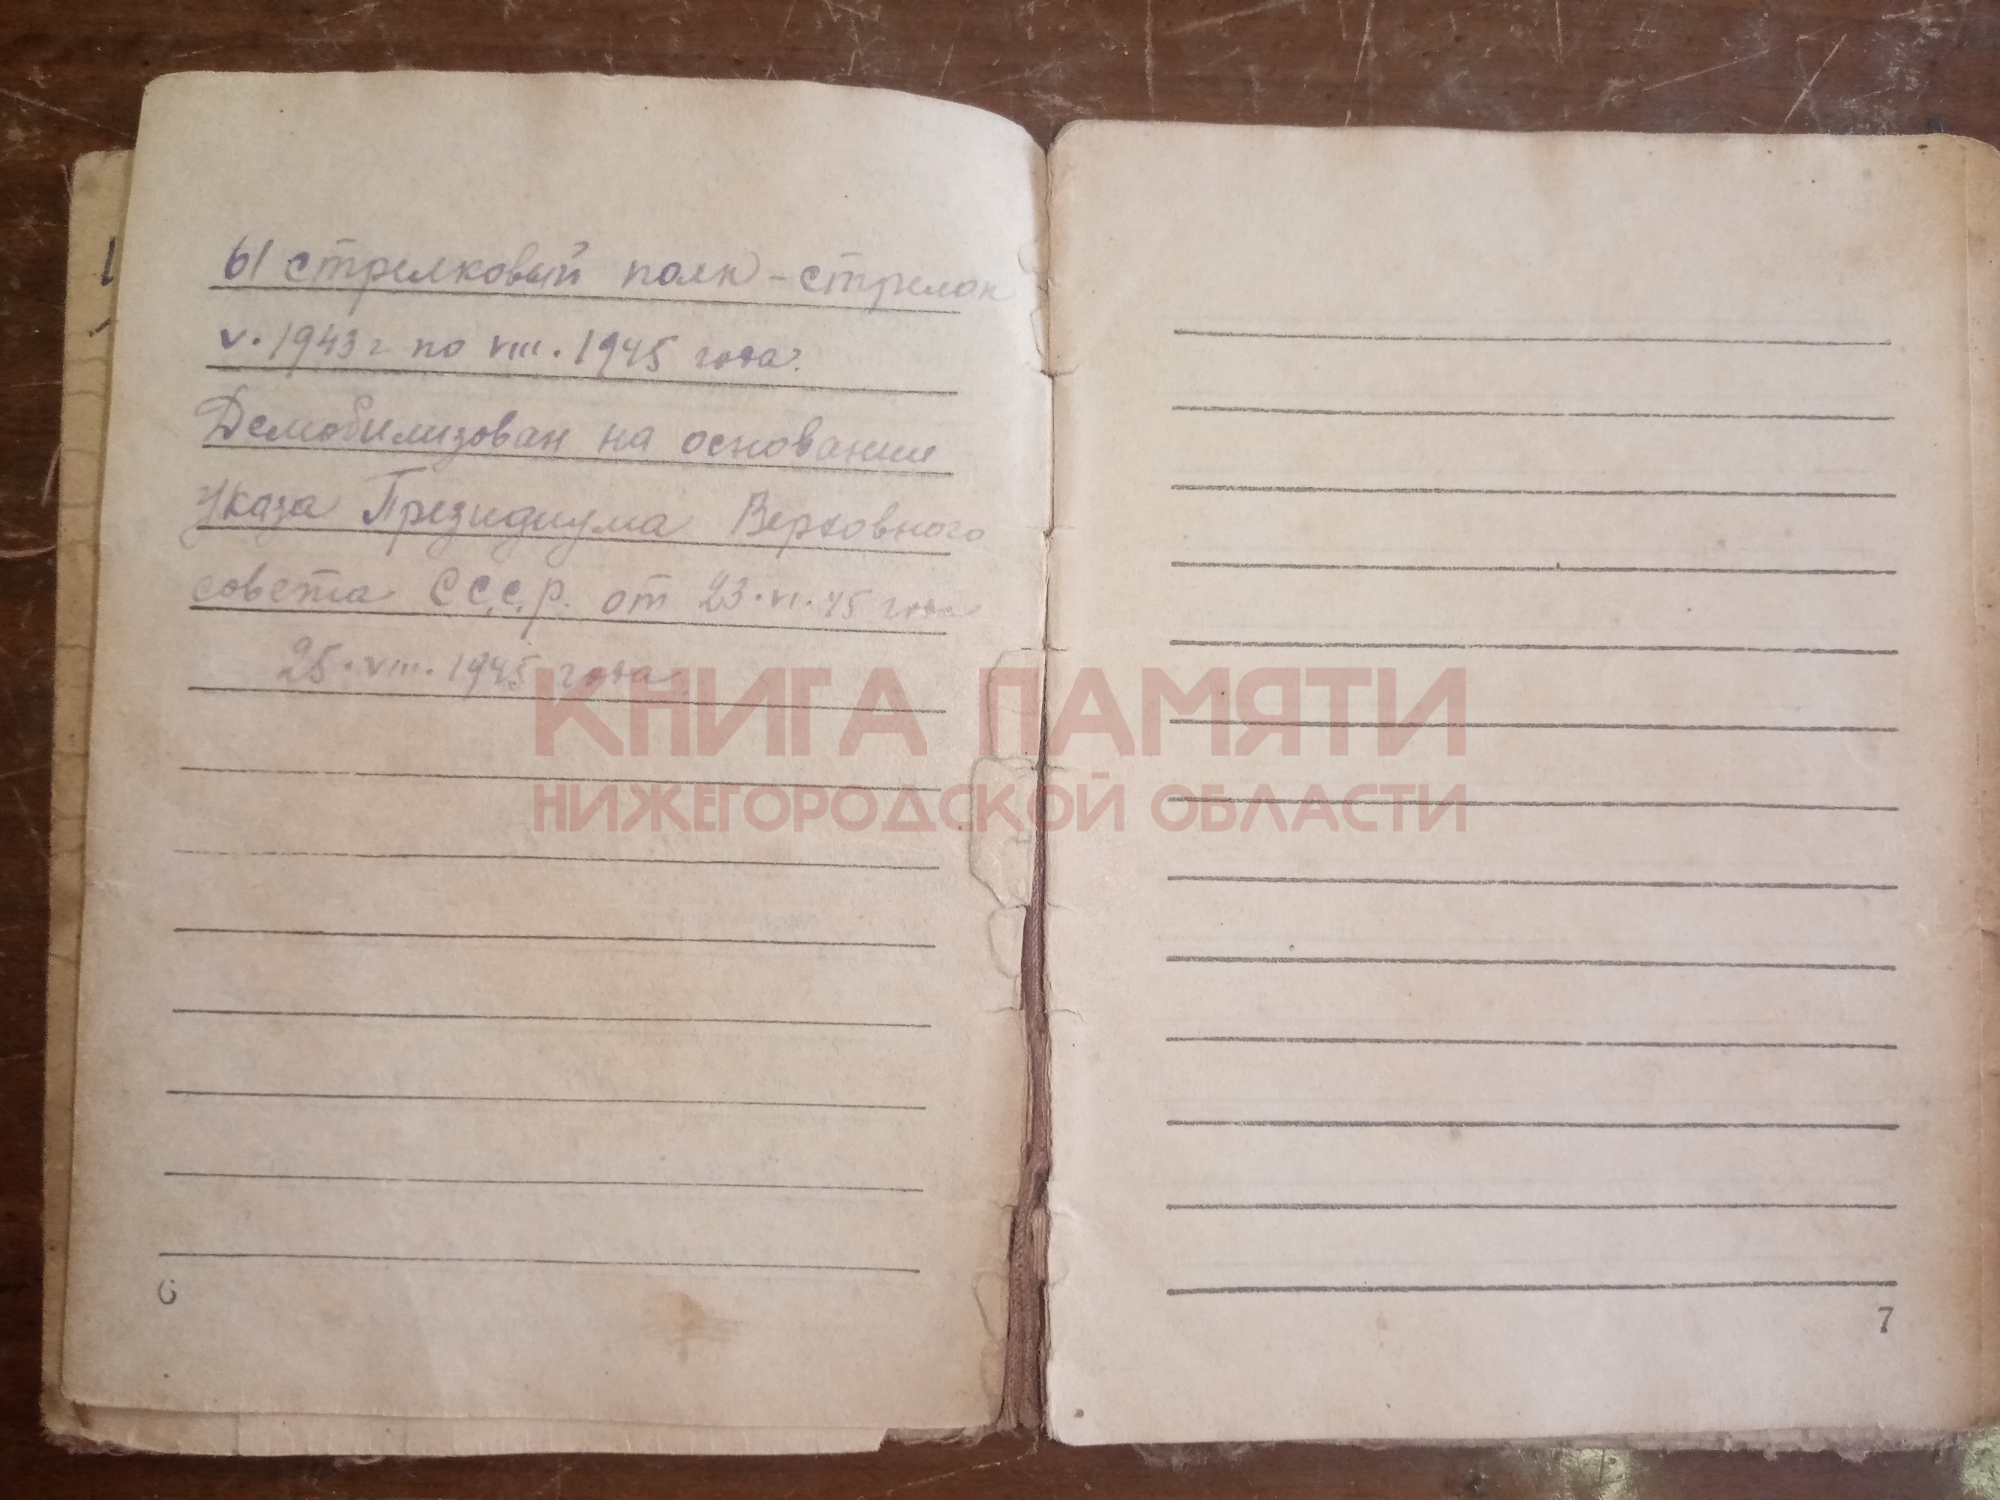 61 стрелковый полк - стрелок
V. 1943 г по VIII. 1945 года.
Демобилизован на основании
Указа Президиума Верховного
совета С.С.С.Р. от 23.VI.45 года
25.VIII.1945 года
КНИГА ПАМЯТИ
НИЖЕГОРОДСКОЙ ОБЛАСТИ
6
7